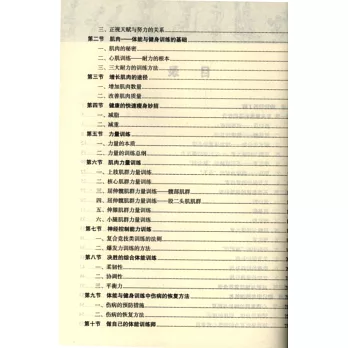 三、正视天赋与努力的关系
第二节 肌肉——体能与健身训练的基础
一、肌肉的秘密
二、心肌训练——耐力的根本
三、三大耐力的训练方法
第三节 增长肌肉的途径
一、增加肌肉数量
二、改善肌肉质量
第四节 健康的快速瘦身妙招
一、减脂
二、减重
第五节 力量训练
一、力量的本质
二、力量的训练总纲
第六节 肌肉力量训练
一、上肢肌群力量训练
二、核心肌群力量训练
三、屈伸髋肌群力量训练——髋部肌群
四、屈伸髋肌群力量训练——股二头肌肌群
五、伸膝肌群力量训练
六、小腿肌群力量训练
第七节 神经控制能力训练
一、复合竞技类训练的法则
二、爆发力训练的方法
第八节 决胜的综合体能训练
一、柔韧性
二、协调性
三、平衡力
第九节 体能与健身训练中伤病的恢复方法
一、伤病的预防措施
二、伤病的恢复方法
第十节 做自己的体能训练师